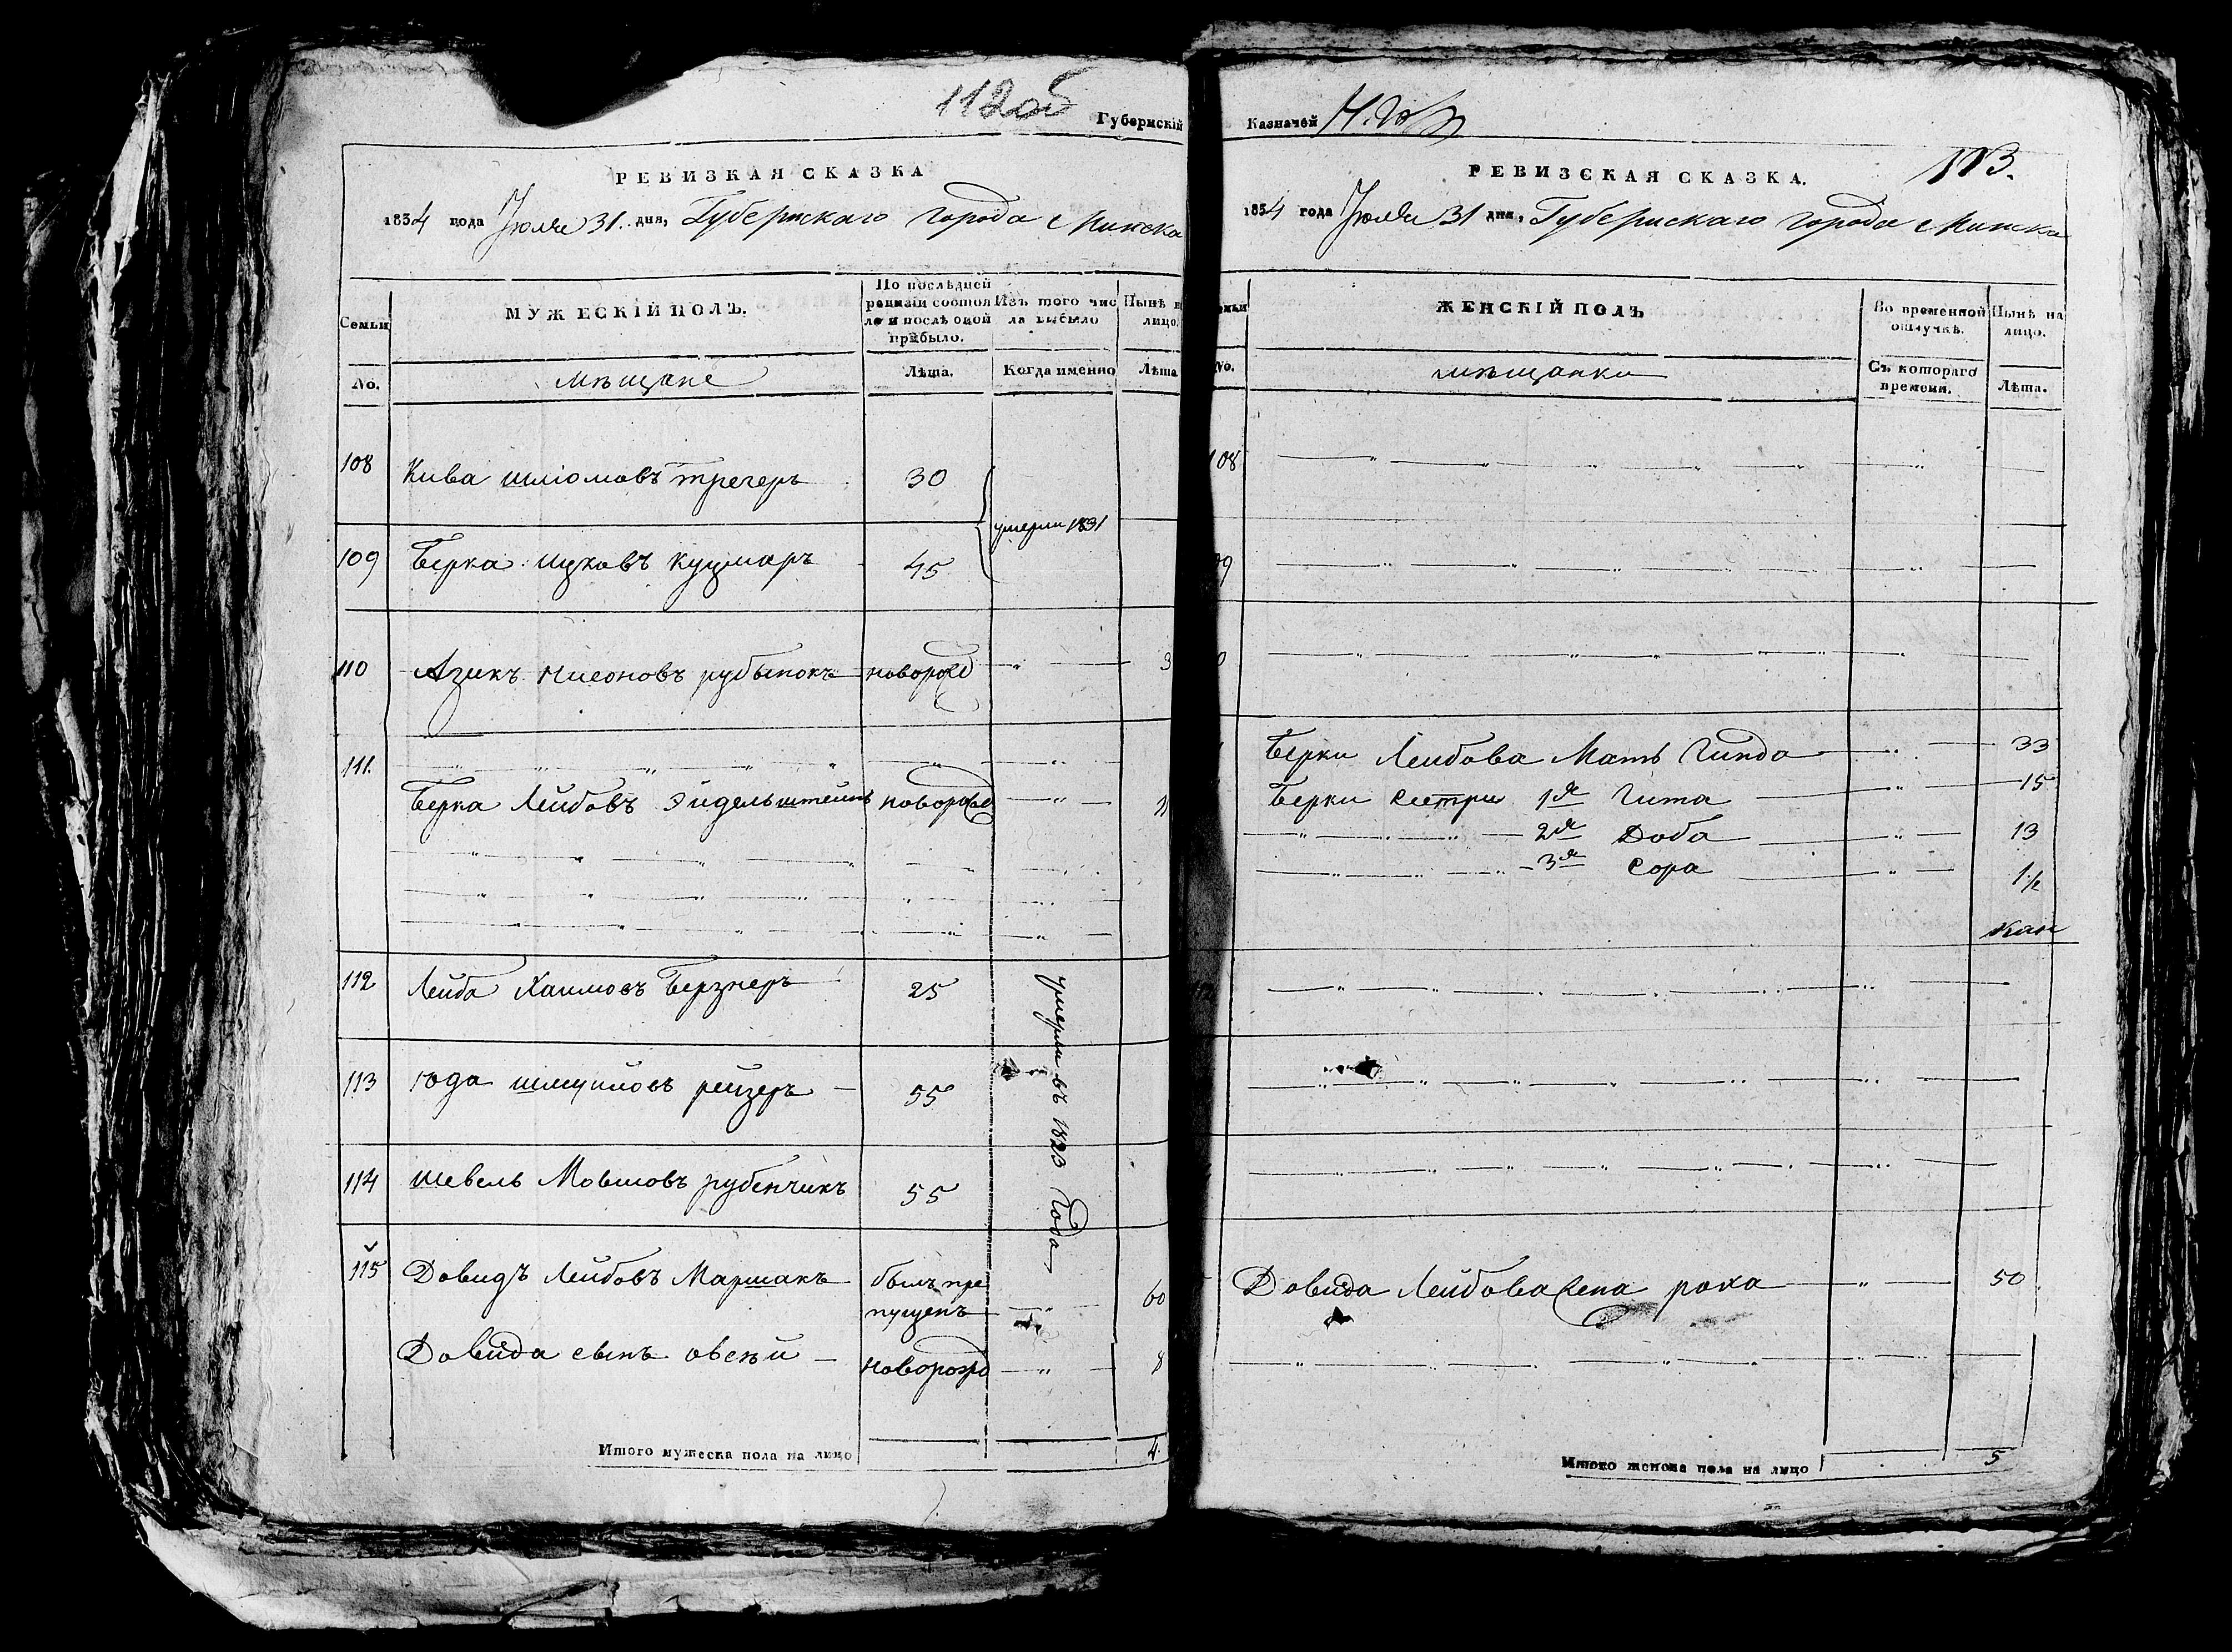 112об
Губернскій
РЕВИЗКАЯ СКАЗКА
1834 года Июля 31. дня, Губернскаго города Минска
Семьи
МУЖЕСКІЙ ПОЛЪ.
По послѣдней
ревизіи состоя
ло и послѣ оной
прибыло.
Изъ того чис
ла выбыло
Нынѣ н
лицо.
No.
мѣщане
Лѣта.
Когда именно
Лѣта
108 Кива шліомовъ трегеръ 30
умерли 1831
109 Берка ицковъ куцнаръ 45
110 Азикъ нисоновъ рубынокъ новорожд 3
111.
Берка Лейбовъ Эйдельштейнъ новорожд 11
112 Лейба Хаимовъ Берзнеръ 25
умерли въ 1823 года
113 юда шмуйловъ рейзеръ 55
114 шевель Мовшовъ рубенчикъ 55
115 Довидъ Лейбовъ Маршакъ былъ про
пущенъ 60
Довида сынъ овсѣй новорожд 8
Итого мужеска пола на лицо 4
Казначей
113.
РЕВИЗСКАЯ СКАЗКА.
1834 года Июля 31 дня, Губернскаго города Минска
емьи
ЖЕНСКІЙ ПОЛЪ
Во временной
отлучкѣ.
Нынѣ на
лицо.
No.
мѣщанки
Съ котораго
времени.
Лѣта.
108
09
0
Берки Лейбова Мать Гинда 33
Берки сестри 1я Гита 15
2я Доба 13
3я Сора 1/2
Довида Лейбова жена роха 50
Итого женска пола на лицо 5